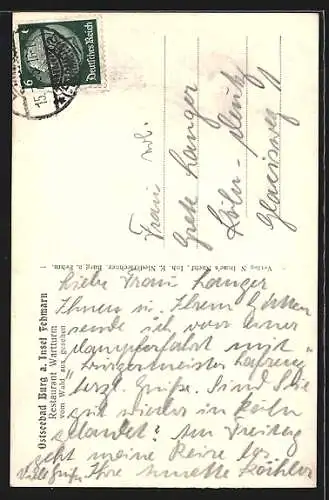 Deutsches Reich
6
15.
Frau
Grete Langer
Köln-Deutz
Glacisweg 1
Ostseebad Burg a. Insel Fehmarn
Restaurant Wartturm
vom Wald aus gesehen
Verlag N. Nachf. Inh. E. Niederlechner, Burg a. Fehm.
Liebe Frau Langer
Ihnen u. Ihrem
sende ich von einer
Dampferfahrt mit
"Bürgermeister
herzl. Grüße. Sind Sie
gut wieder in Köln
gelandet? Am Freitag
geht meine Reise los
Viele Grüße Ihre Annette Köhler